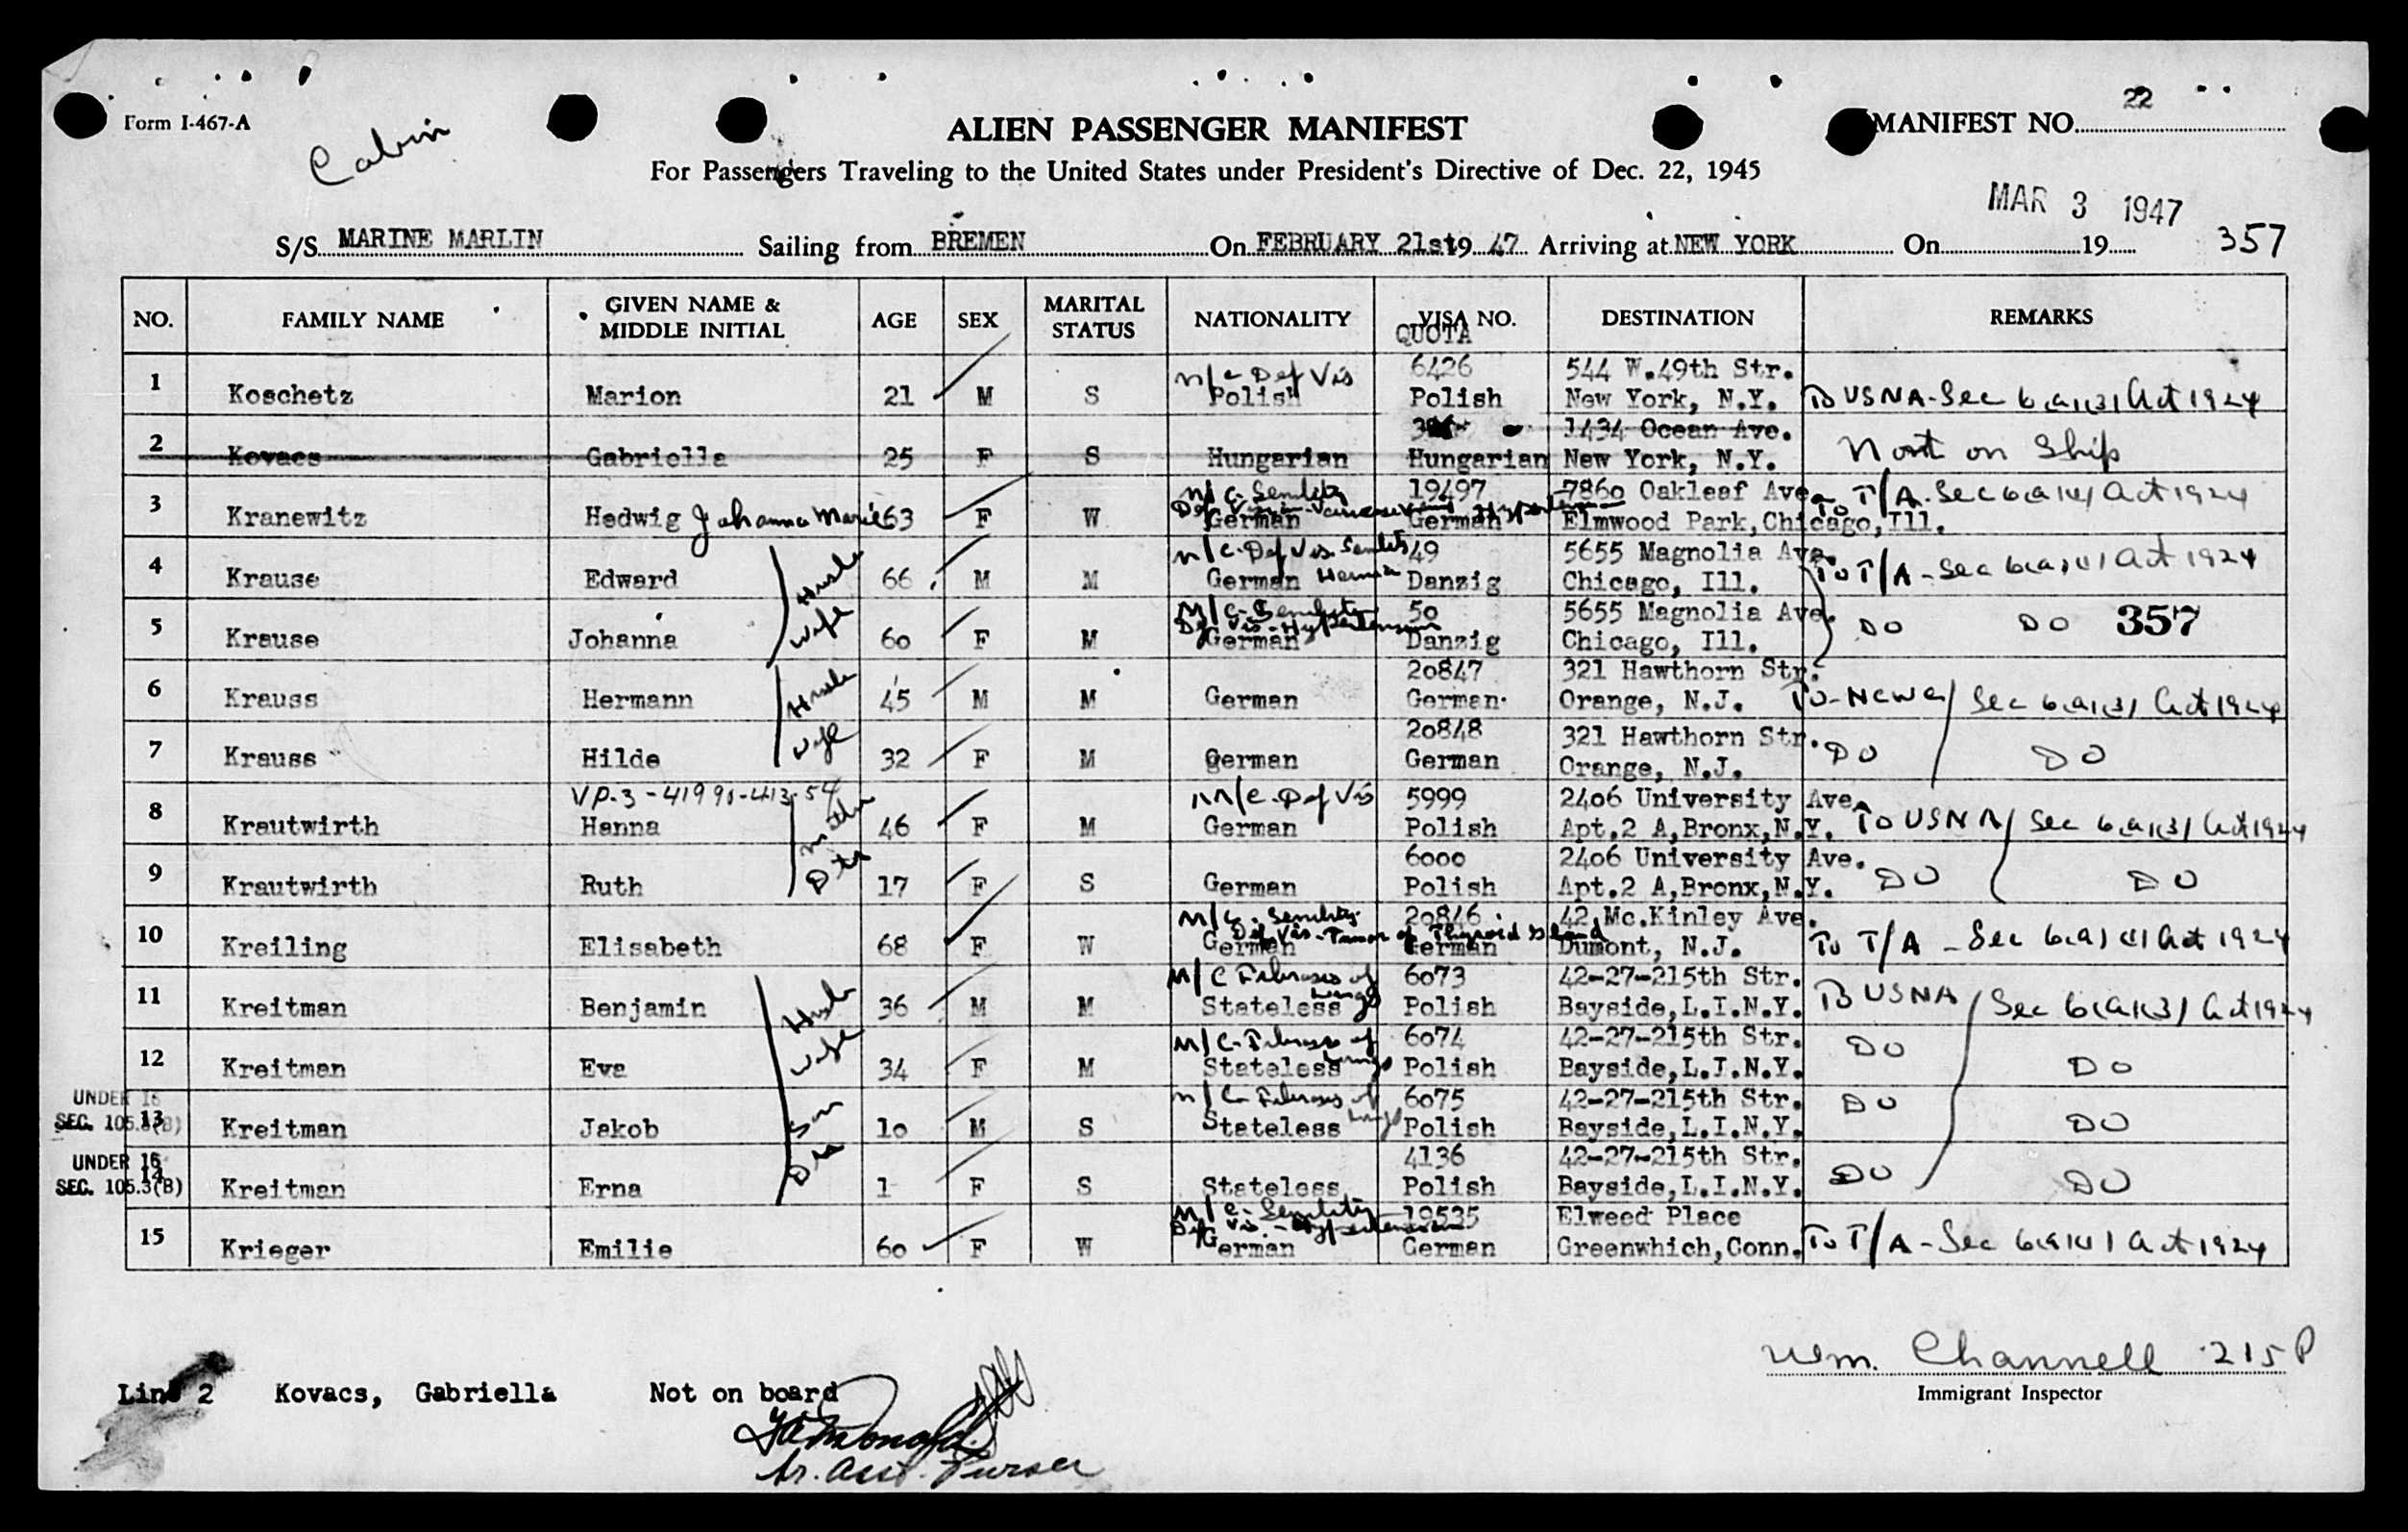 22
Form I-467-A
Cabin
ALIEN PASSENGER MANIFEST
MANIFEST NO.
For Passengers Traveling to the United States under President's Directive of Dec. 22, 1945
MAR 3 1947
S/S MARINE MARLIN Sailing from BREMEN On FEBRUARY 21st 19 47 Arriving at NEW YORK On 19 357
NO. FAMILY NAME GIVEN NAME & MIDDLE INITIAL AGE SEX MARITAL STATUS NATIONALITY VISA NO. QUOTA DESTINATION REMARKS
n/c Def Vis 6426 544 W.49th Str.
1 Koschetz Marion 21 M S Polish Polish New York, N.Y. To USNA-Sec 6(a)(3) Act 1924
1434 Ocean Ave.
2 Kovacs Gabriella 25 F S Hungarian Hungarian New York, N.Y. Not on Ship
n/c. Senility 19497 7860 Oakleaf Ave. To T/A-Sec 6(a)(4) Act 1924
3 Kranewitz Hedwig Johanna Marie 63 F W German German Elmwood Park,Chicago,Ill.
n/c-Def Vis Senility 49 5655 Magnolia Ave.
4 Krause Edward Husb 66 M M German Hernia Danzig Chicago, Ill. To T/A-Sec 6(a)(4) Act 1924
n/c-Senility Def Vis-Hypertension 50 5655 Magnolia Ave.
5 Krause Johanna Wife 60 F M German Danzig Chicago, Ill. DO DO 357
20847 321 Hawthorn Str.
6 Krauss Hermann Husb 45 M M German German Orange, N.J. To-Newa/ Sec 6(a)(3) Act 1924
20848 321 Hawthorn Str.
7 Krauss Hilde Wife 32 F M German German Orange, N.J. DO DO
VP-3-41991-413-54 n/c-Def Vis 5999 2406 University Ave.
8 Krautwirth Hanna Mother 46 F M German Polish Apt.2 A,Bronx,N.Y. To USNA/ Sec 6(a)(3) Act 1924
6000 2406 University Ave.
9 Krautwirth Ruth Dtr 17 F S German Polish Apt.2 A,Bronx,N.Y. DO DO
n/c. Senility 20846 42 Mc.Kinley Ave.
Def Vis-Tumor of Thyroid Gland
10 Kreiling Elisabeth 68 F W German German Dumont, N.J. To T/A-Sec 6(a)(4) Act 1924
n/c Fibrosis of Lungs 6073 42-27-215th Str.
11 Kreitman Benjamin Husb 36 M M Stateless Polish Bayside,L.I.N.Y. To USNA/ Sec 6(a)(3) Act 1924
n/c-Fibrosis of Lungs 6074 42-27-215th Str.
12 Kreitman Eva Wife 34 F M Stateless Polish Bayside,L.I.N.Y. DO DO
UNDER 16
n/c Fibrosis of Lungs 6075 42-27-215th Str.
SEC. 105.3(B) 13 Kreitman Jakob Son 10 M S Stateless Polish Bayside,L.I.N.Y. DO DO
UNDER 16
4136 42-27-215th Str.
SEC. 105.3(B) 14 Kreitman Erna Dtr 1 F S Stateless Polish Bayside,L.I.N.Y. DO DO
n/c-Senility Def Vis.-Hypertension 19535 Elweed Place
15 Krieger Emilie 60 F W German German Greenwhich,Conn. To T/A-Sec 6(a)(4) Act 1924
Wm. Channell 215P
Immigrant Inspector
Line 2 Kovacs, Gabriella Not on board
Jr. Asst. Purser